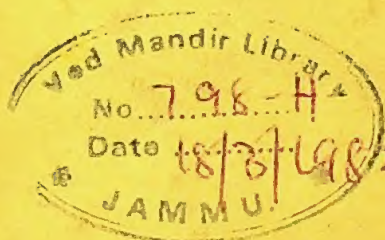 Ved Mandir Library
No. 798-H
Date
JAMMU.